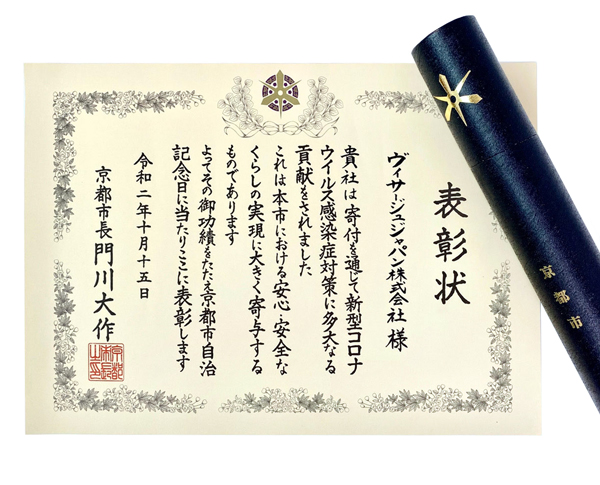 表彰状
ヴィサージュジャパン株式会社 様
貴社は寄付を通じて新型コロナ
ウイルス感染症対策に多大なる
貢献をされました
これは本市における安心・安全な
くらしの実現に大きく寄与する
ものであります
よってその御功績をたたえ京都市自治
記念日に当たりここに表彰します
令和二年十月十五日
京都市長 門川大作
京都市長之印
京都市